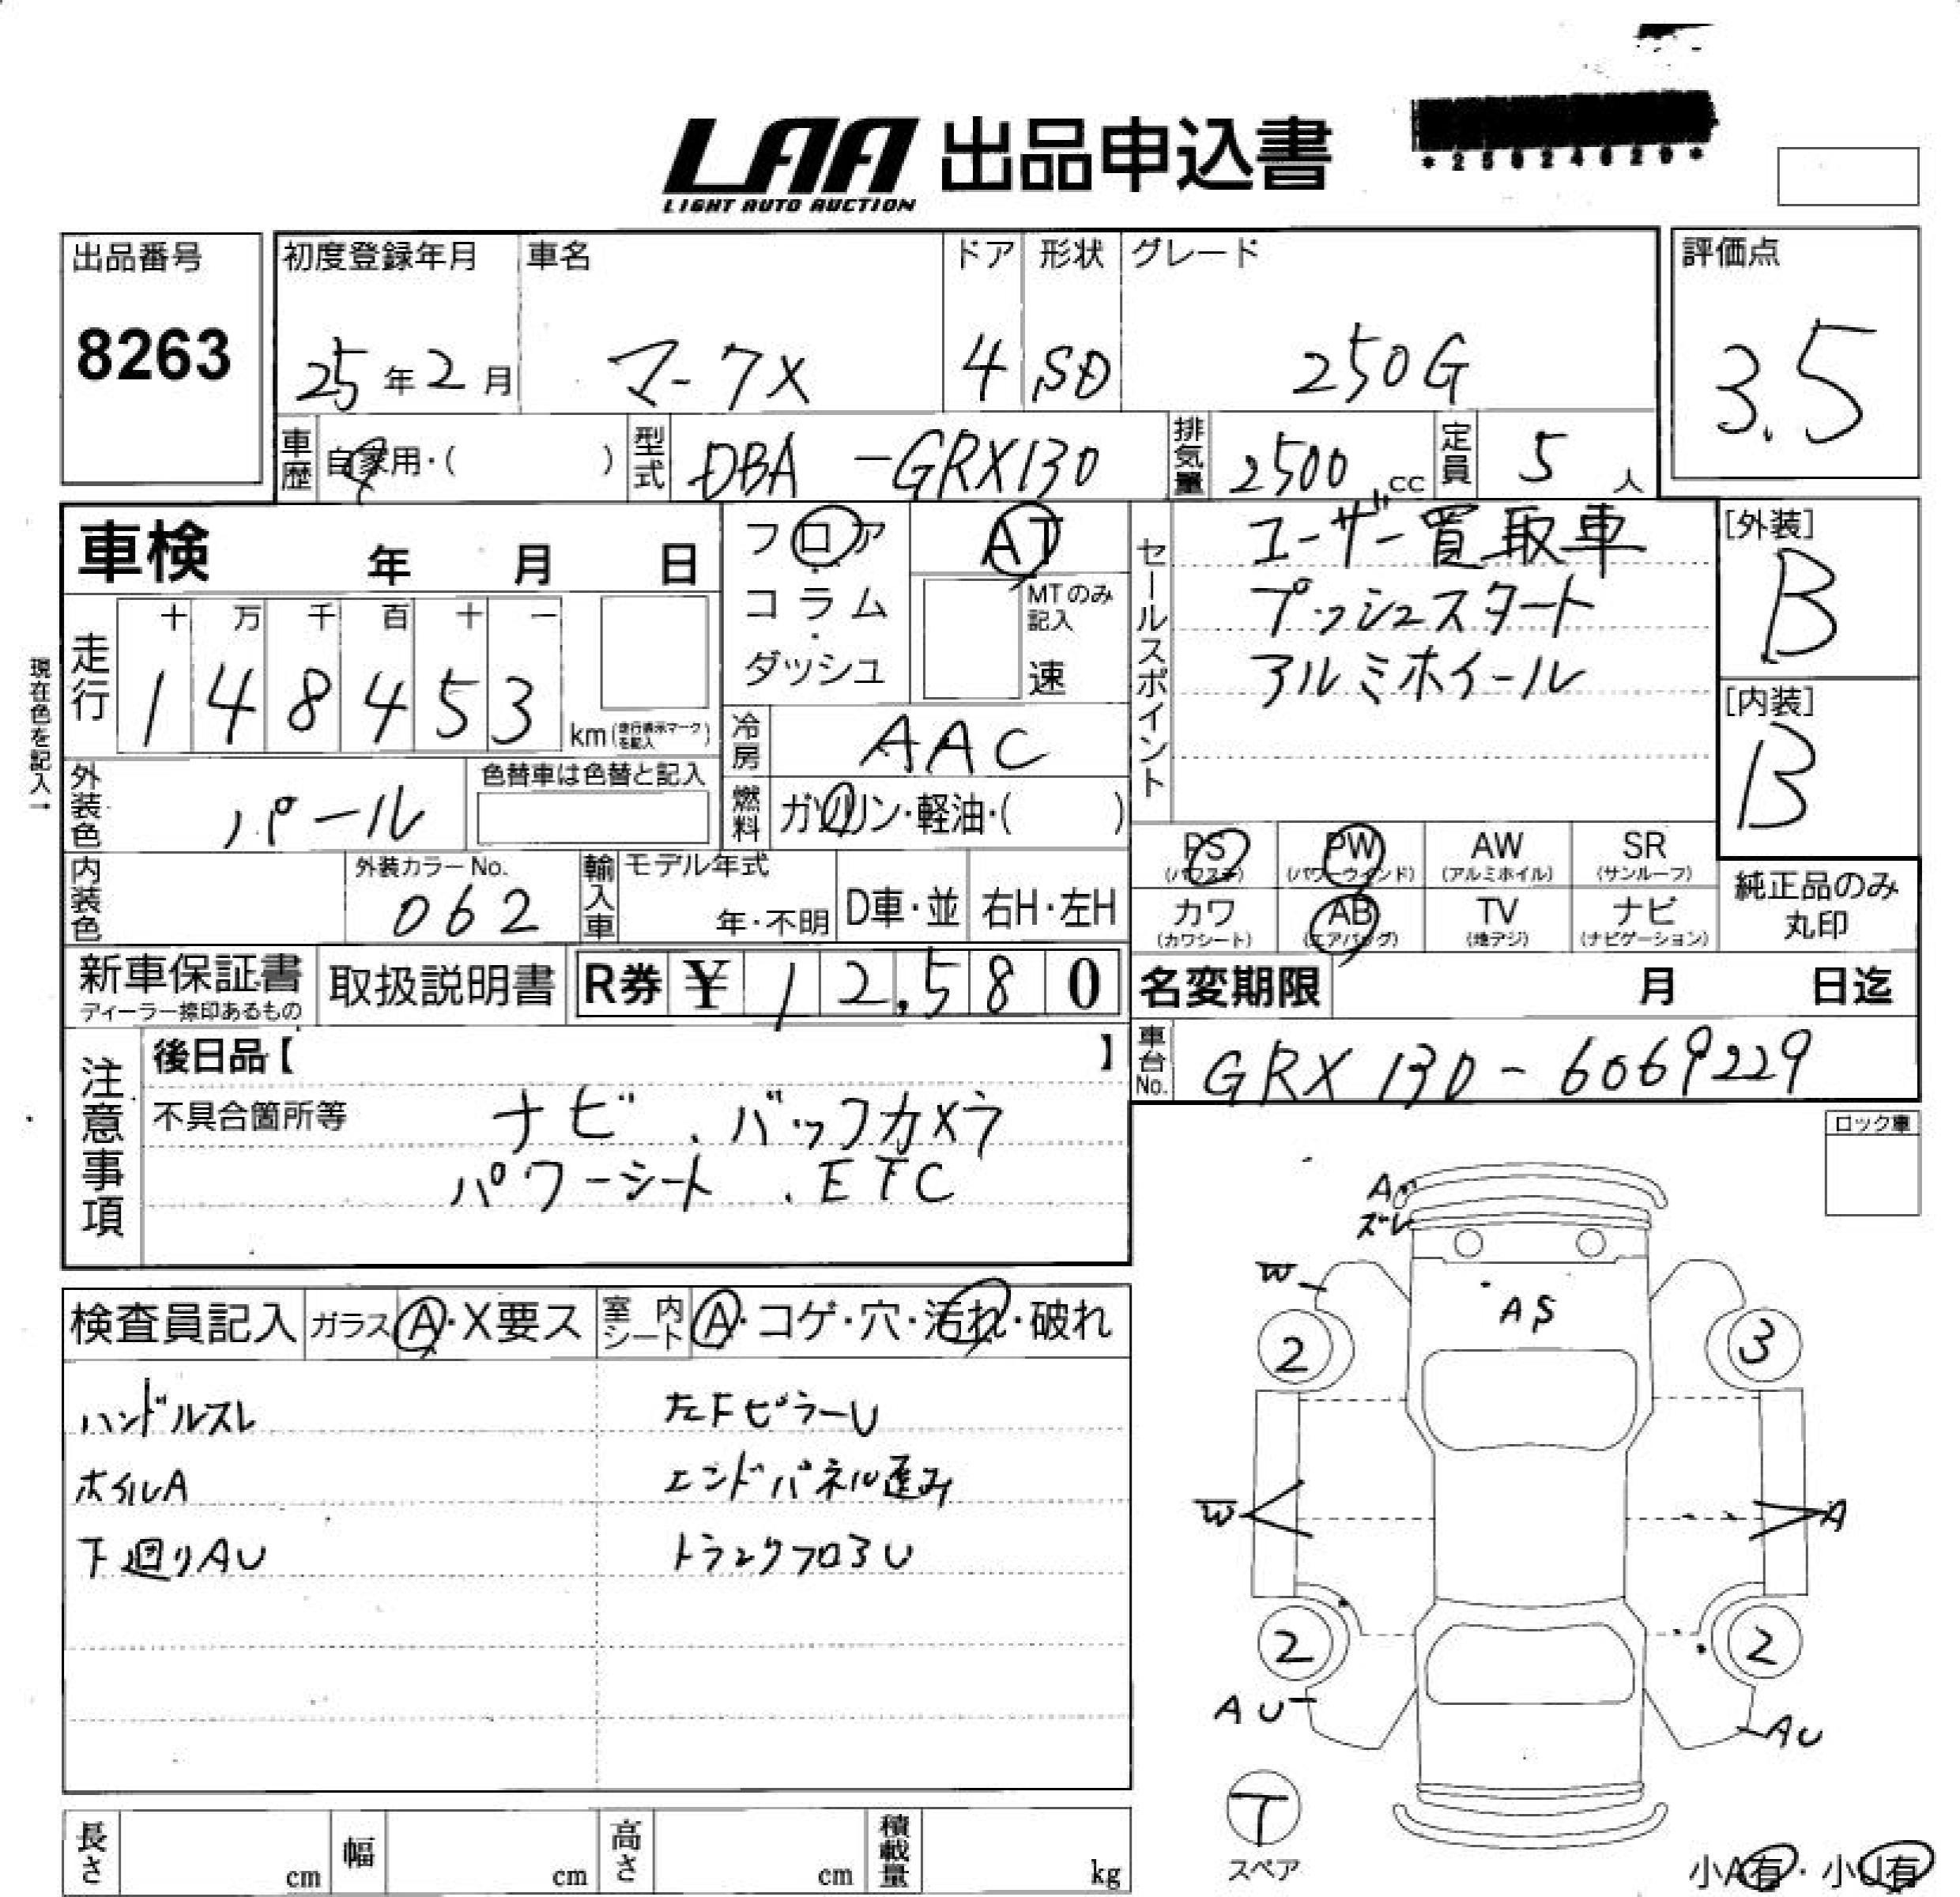 LAA 出品申込書
LIGHT AUTO AUCTION
出品番号
8263
初度登録年月
25年2月
車名
マークX
ドア
4
形状
SD
グレード
250G
評価点
3.5
車歴
自家用・( )
型式
DBA-GRX130
排気量
2500cc
定員
5人
車検 年 月 日
フロア・コラム・ダッシュ
AT
MTのみ記入
速
セールスポイント
ユーザー買取車
プッシュスタート
アルミホイール
[外装]
B
[内装]
B
現在色を記入→
走行
十 万 千 百 十 一
1 4 8 4 5 3
km(走行表示マークを記入)
冷房
AAC
外装色
パール
色替車は色替と記入
燃料
ガソリン・軽油・( )
PS
(パワステ)
PW
(パワーウインド)
AW
(アルミホイル)
SR
(サンルーフ)
カワ
(カワシート)
AB
(エアバッグ)
TV
(地デジ)
ナビ
(ナビゲーション)
純正品のみ
丸印
内装色
外装カラーNo.
062
輸入車
モデル年式
年・不明
D車・並
右H・左H
新車保証書
ディーラー捺印あるもの
取扱説明書
R券 ¥ 12,580
名変期限 月 日迄
車台No.
GRX130-6069229
注意事項
後日品【 】
不具合箇所等
ナビ、バックカメラ
パワーシート、ETC
ロック車
検査員記入
ガラス A・X要ス
室内シート A・コゲ・穴・汚れ・破れ
ハンドルスレ
左FピラーU
ホイルA
エンドパネル歪み
下廻りAU
トランクフロアU
A
ズレ
W
AS
2
3
W
A
2
2
AU
AU
T
スペア
小A有・小U有
長さ cm
幅 cm
高さ cm
積載量 kg